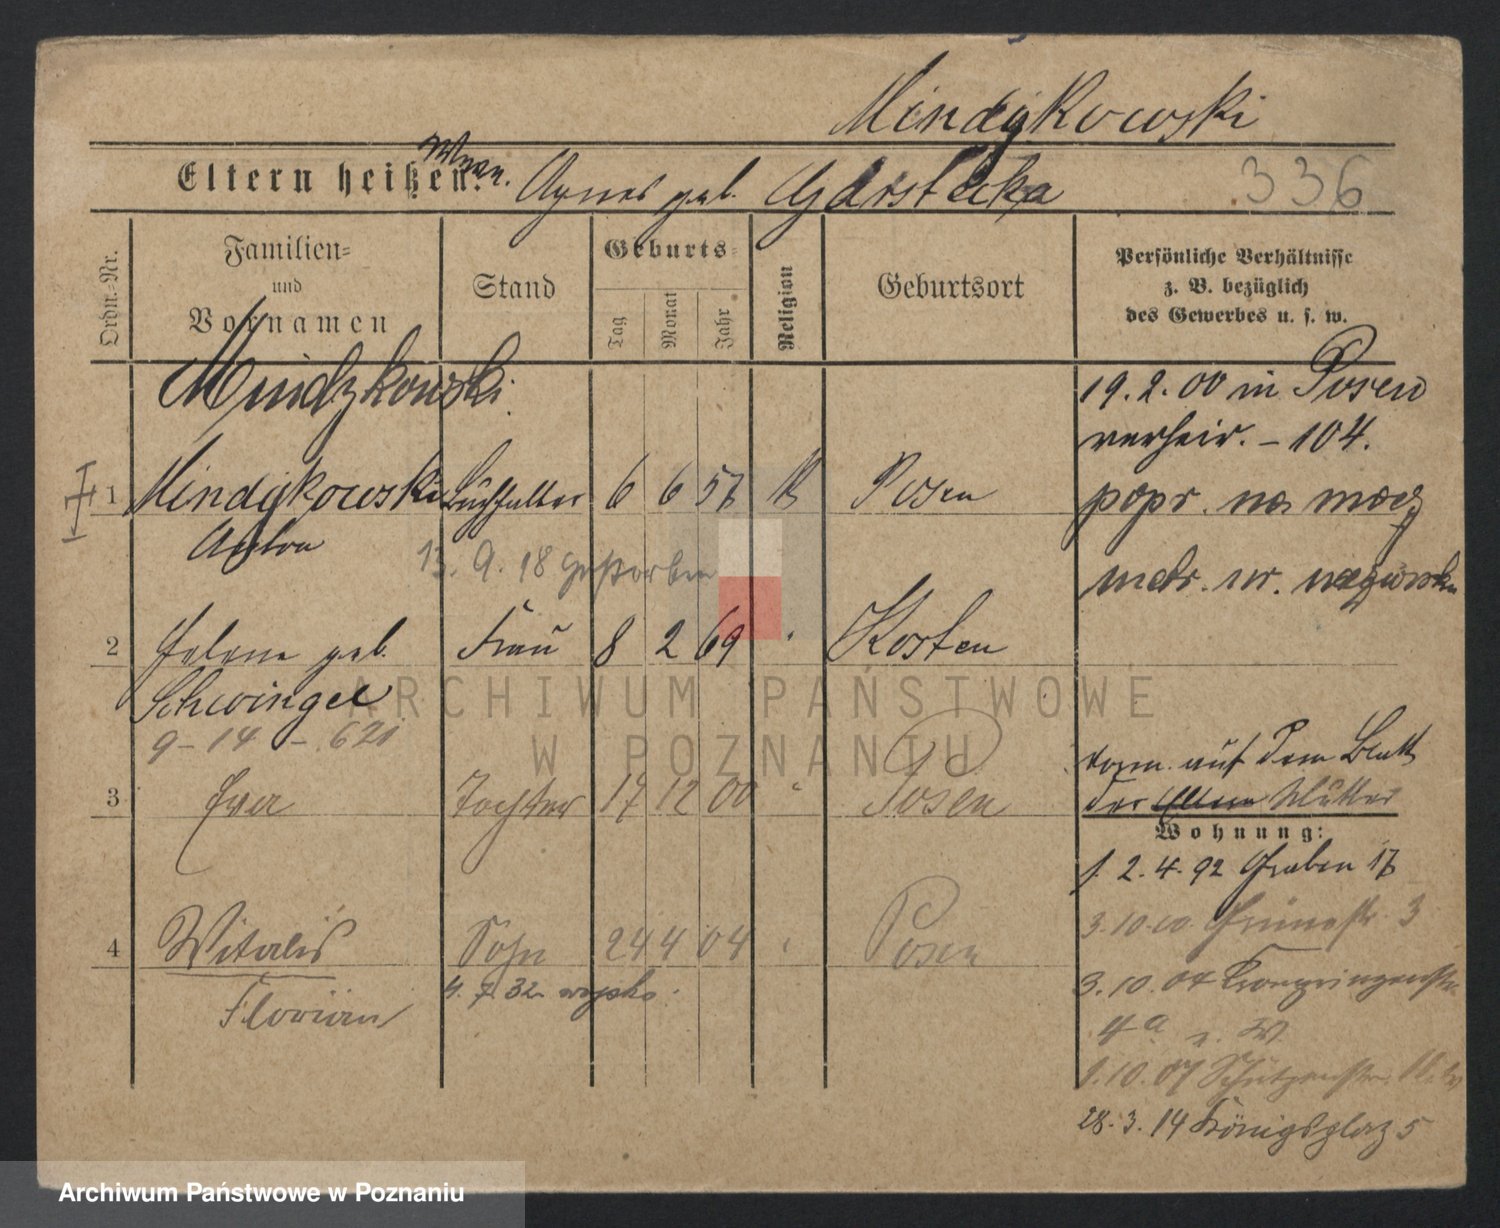 Mindykowski
Eltern heißen: Agnes geb. Garstecka
336
Ordn.-Nr.
Familien- und Vornamen
Stand
Geburts-
Tag
Monat
Jahr
Religion
Geburtsort
Persönliche Verhältnisse
z. B. bezüglich
des Gewerbes u. s. w.
Mindykowski
19.2.00 in Posen
verheir. - 104.
1 Mindykowski Buchhalter 6 6 57 K Posen
Anton
popr. na mocy
metr. ur.
13. 9. 18 gestorben
2 Helene geb. Frau 8 2 69 " Kosten
Schwingel
9 - 14 - 621
vorm. auf dem Blatt
der Eltern Mutter
3 Eva Tochter 17 12 00 " Posen
Wohnung:
1. 2.4.92 Graben 17
3.10.00 Grünestr. 3
4 Witalis Sohn 24 4 04 " Posen
Florian
4. 7. 32
3.10.04 Kronprinzenstr.
4a
1.10.07 Schützenstr.
28.3.14 Königsplatz 5
ARCHIWUM PAŃSTWOWE
W POZNANIU
Archiwum Państwowe w Poznaniu